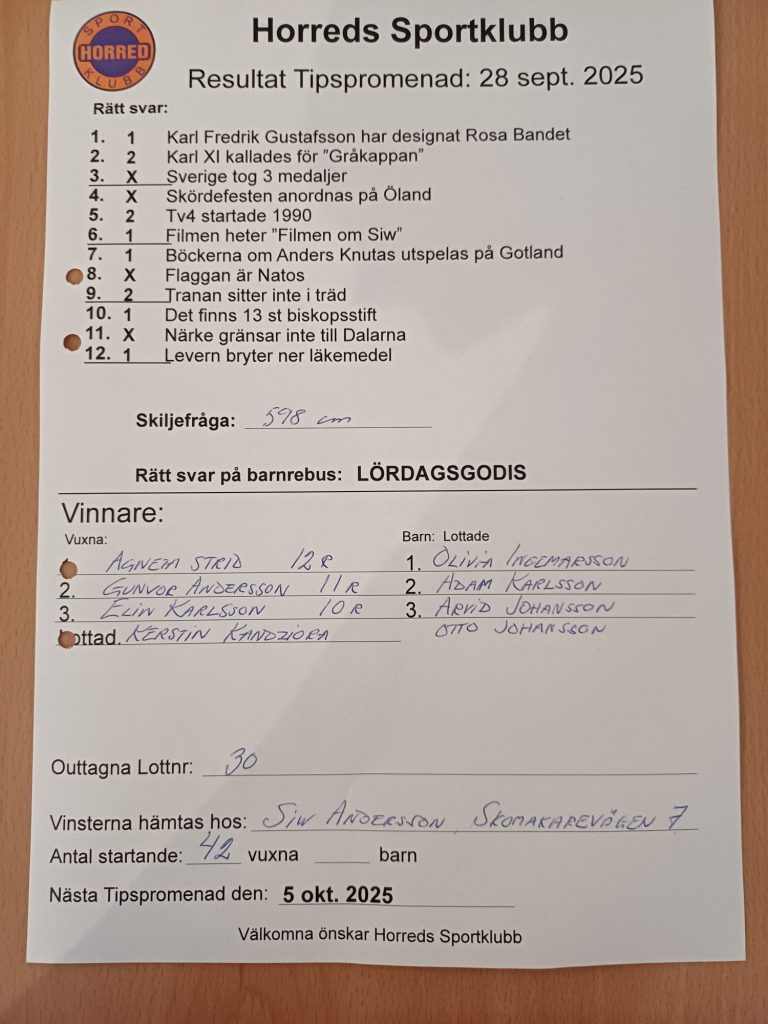 SPORT
HORRED
KLUBB
Horreds Sportklubb
Resultat Tipspromenad: 28 sept. 2025
Rätt svar:
1. 1 Karl Fredrik Gustafsson har designat Rosa Bandet
2. 2 Karl XI kallades för ”Gråkappan”
3. X Sverige tog 3 medaljer
4. X Skördefesten anordnas på Öland
5. 2 Tv4 startade 1990
6. 1 Filmen heter ”Filmen om Siw”
7. 1 Böckerna om Anders Knutas utspelas på Gotland
8. X Flaggan är Natos
9. 2 Tranan sitter inte i träd
10. 1 Det finns 13 st biskopsstift
11. X Närke gränsar inte till Dalarna
12. 1 Levern bryter ner läkemedel
Skiljefråga: 598 cm
Rätt svar på barnrebus: LÖRDAGSGODIS
Vinnare:
Vuxna: Barn: Lottade
AGNETA STRID 12 R 1. OLIVIA INGEMARSSON
2. GUNVOR ANDERSSON 11 R 2. ADAM KARLSSON
3. ELIN KARLSSON 10 R 3. ARVID JOHANSSON
Lottad. KERSTIN KANDZIORA OTTO JOHANSSON
Outtagna Lottnr: 30
Vinsterna hämtas hos: SIW ANDERSSON SKOMAKAREVÄGEN 7
Antal startande: 42 vuxna ____ barn
Nästa Tipspromenad den: 5 okt. 2025
Välkomna önskar Horreds Sportklubb